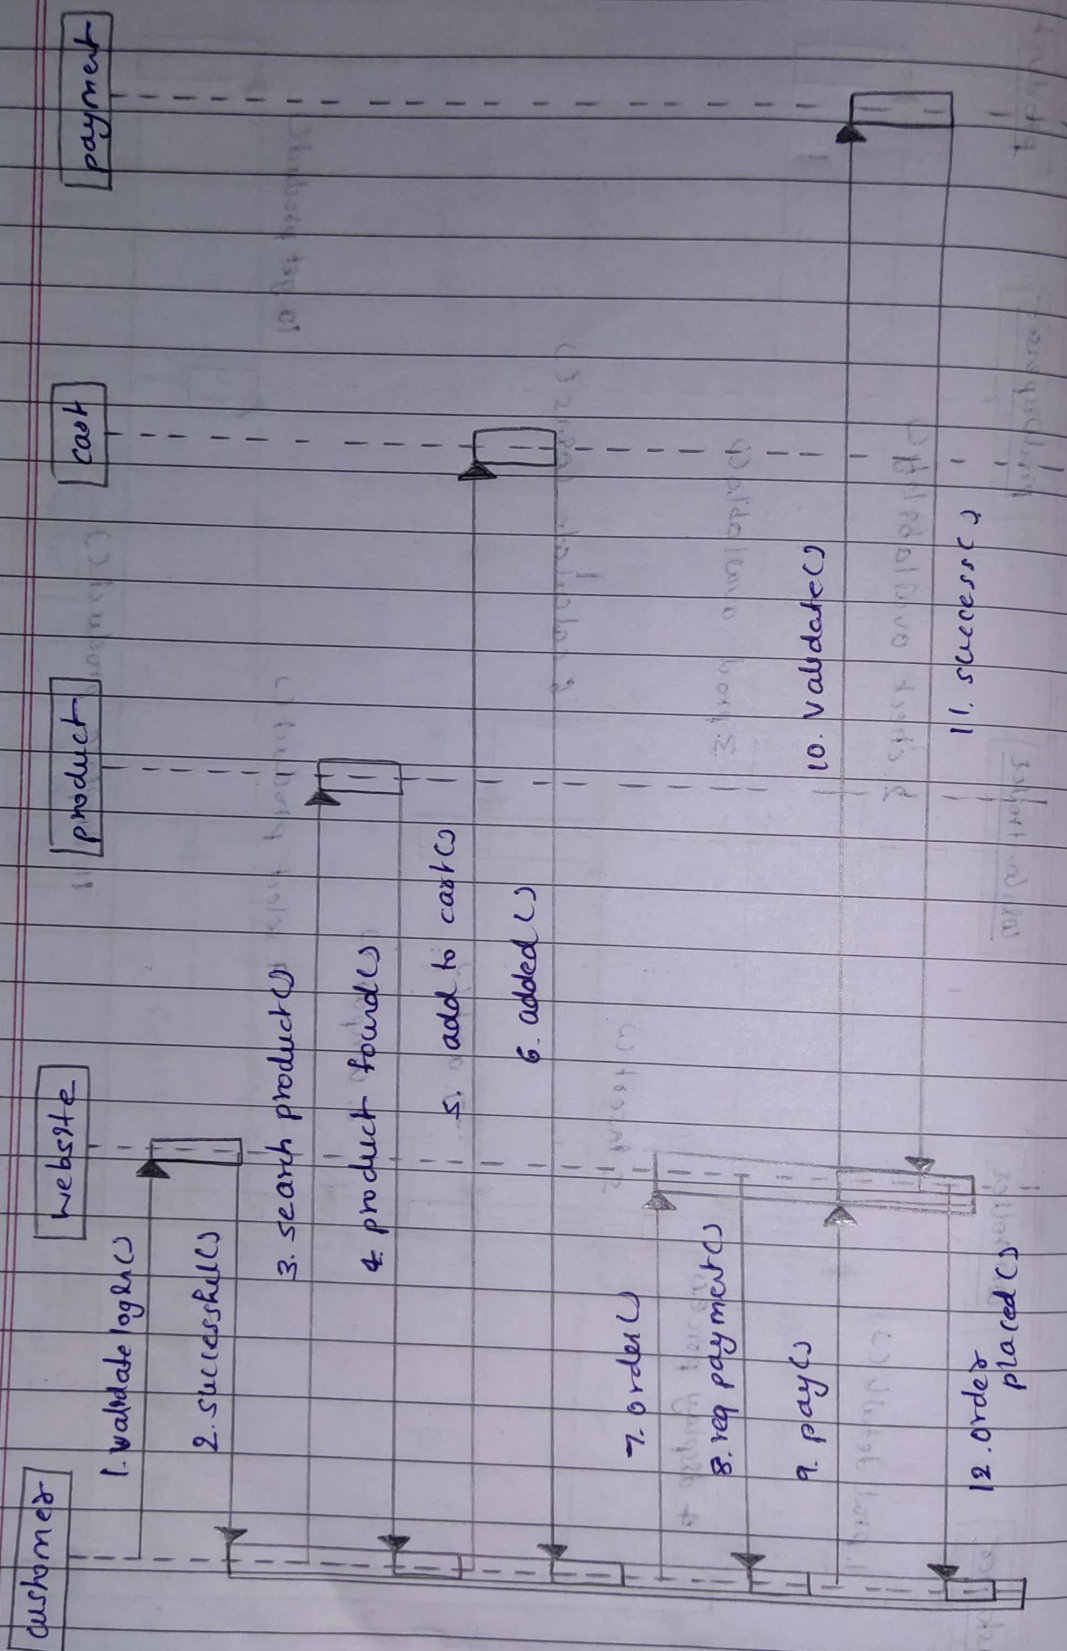 customer
website
product
cart
payment
1. validate login()
2. successful()
3. search product()
4. product found()
5. add to cart()
6. added()
7. order()
8. req payment()
9. pay()
10. validate()
11. success()
12. order
placed()